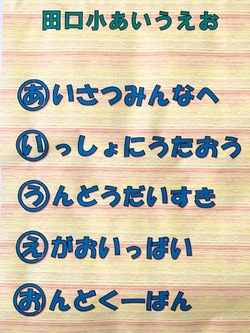 田口小あいうえお
あいさつみんなへ
いっしょにうたおう
うんどうだいすき
えがおいっぱい
おんどくーばん